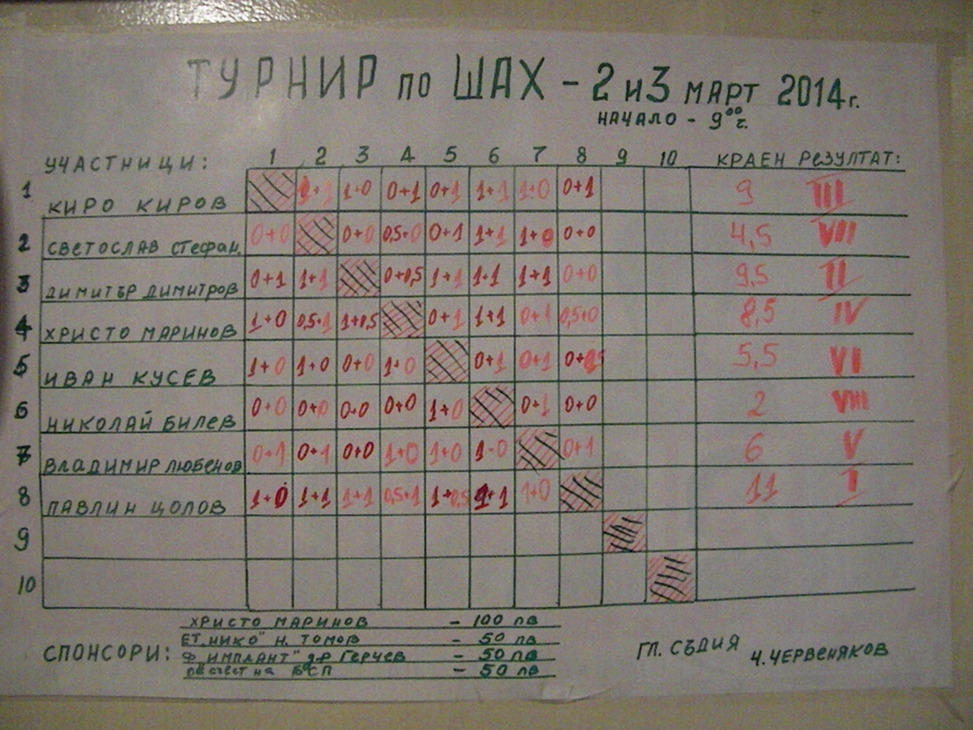 ТУРНИР по ШАХ - 2 и 3 МАРТ 2014г.
НАЧАЛО - 9⁰⁰ г.
УЧАСТНИЦИ: 1 2 3 4 5 6 7 8 9 10 КРАЕН РЕЗУЛТАТ:
1 КИРО КИРОВ 1+1 1+0 0+1 0+1 1+1 1+0 0+1 9 III
2 СВЕТОСЛАВ СТЕФАН. 0+0 0+0 0,5+0 0+1 1+1 1+0 0+0 4,5 VII
3 ДИМИТЪР ДИМИТРОВ 0+1 1+1 0+0,5 1+1 1+1 1+1 0+0 9,5 II
4 ХРИСТО МАРИНОВ 1+0 0,5+1 1+0,5 0+1 1+1 0+1 0,5+0 8,5 IV
5 ИВАН КУСЕВ 1+0 1+0 0+0 1+0 0+1 0+1 0+0,5 5,5 VI
6 НИКОЛАЙ БИЛЕВ 0+0 0+0 0+0 0+0 1+0 0+1 0+0 2 VIII
7 ВЛАДИМИР ЛЮБЕНОВ 0+1 0+1 0+0 1+0 1+0 1-0 0+1 6 V
8 ПАВЛИН ЦОЛОВ 1+0 1+1 1+1 0,5+1 1+0,5 1+1 1+0 11 I
9
10
СПОНСОРИ:
ХРИСТО МАРИНОВ - 100 лв
ЕТ"НИКО" Н. ТОМОВ - 50 лв
Ф."ИМПЛАНТ" д-р Герчев - 50 лв
на БСП - 50 лв
ГЛ. СЪДИЯ Ч. ЧЕРВЕНЯКОВ